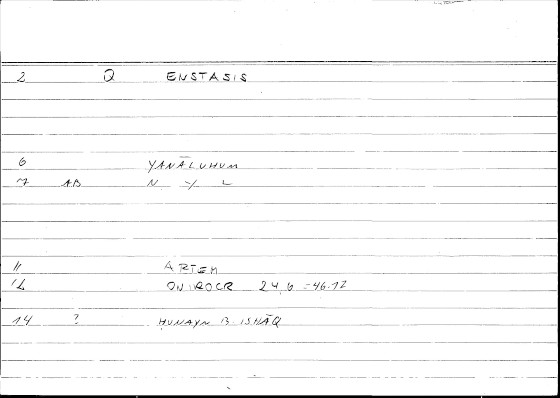 2 Q ENSTASIS
6 YANĀLUHUM
7 AB N Y L
11 ARTEM
12 ONIROCR 24,6 = 46.12
14 ? ḤUNAYN B ISHĀQ